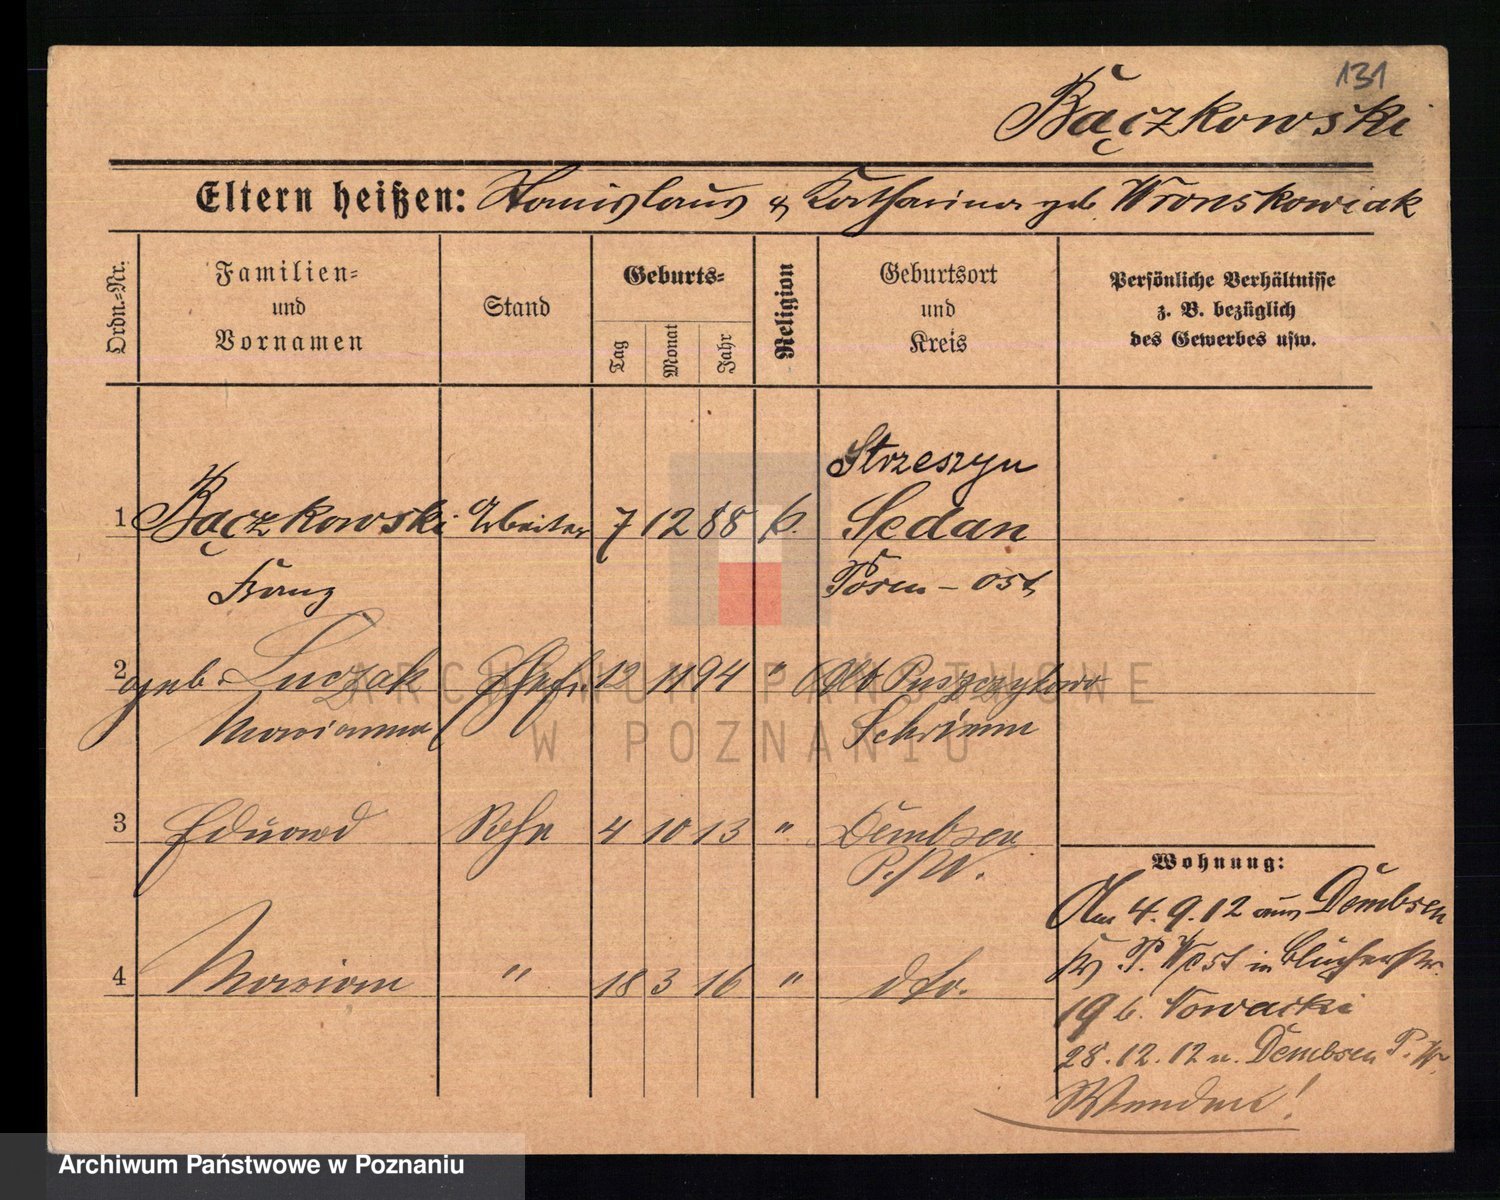 131
Bączkowski
Eltern heißen: Stanislaus & Katharina geb Wronskowiak
Ordn.-Nr.
Familien-
und
Vornamen
Stand
Geburts-
Tag
Monat
Jahr
Religion
Geburtsort
und
Kreis
Persönliche Verhältnisse
z. B. bezüglich
des Gewerbes usw.
Strzeszyn
1 Bączkowski Arbeiter 7 12 88 k. Sedan
Franz Posen-Ost
2 geb. Luczak Ehefr. 12 11 94 " Puszczykowo
Marianna Schrimm
3 Eduard Sohn 4 10 13 " Dembsen
P./W.
4 Marian " 18 3 16 " dto.
Wohnung:
Am 4.9.12 aus Dembsen
Kr P. West in Blücherstr.
19 b. Nowacki
28.12.12 n. Dembsen P. W.
Wenden!
ARCHIWUM PAŃSTWOWE
W POZNANIU
Archiwum Państwowe w Poznaniu